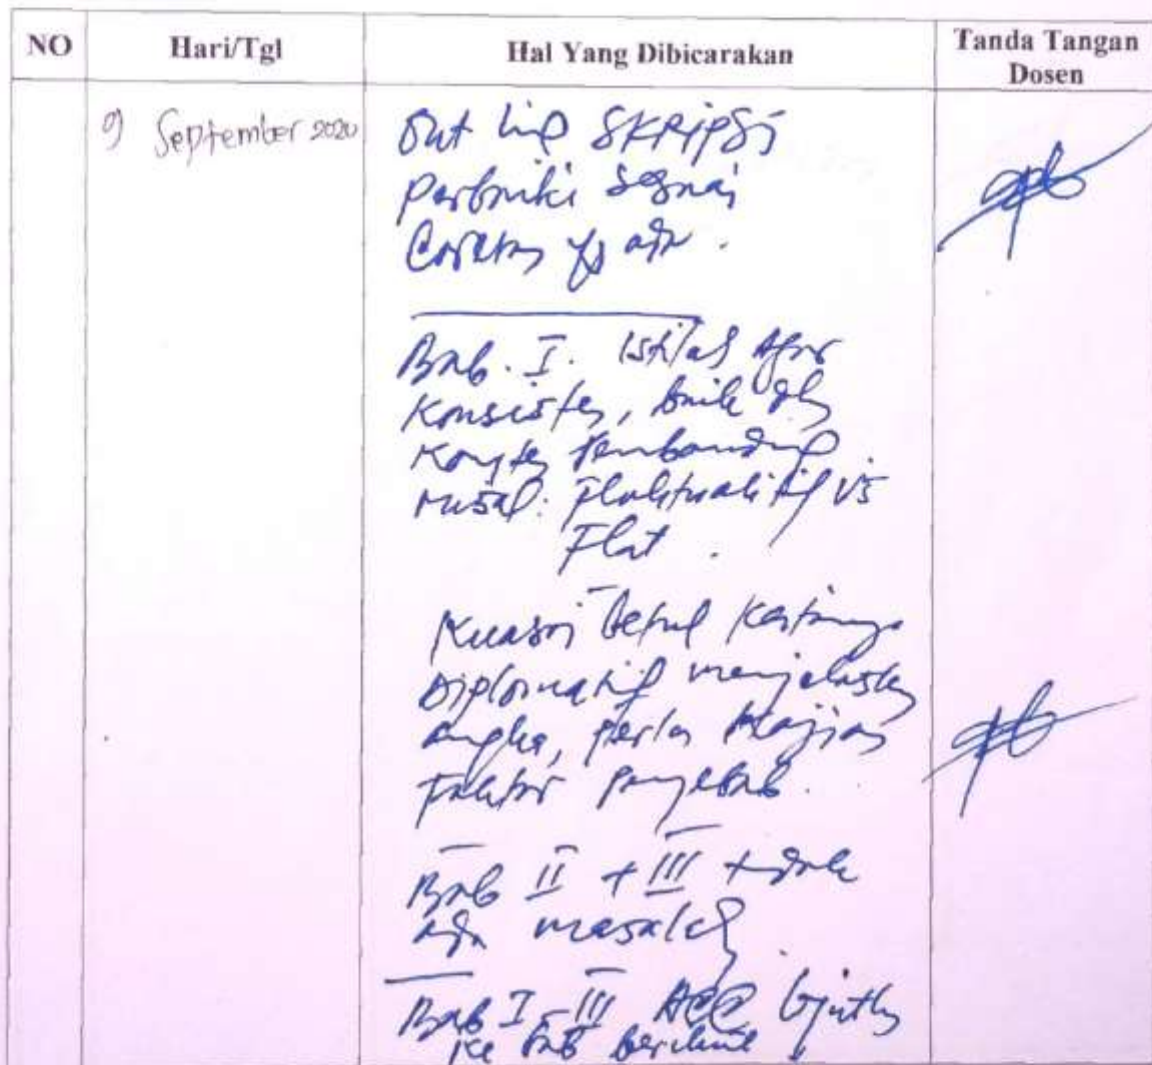 NO Hari/Tgl Hal Yang Dibicarakan Tanda Tangan Dosen
9 September 2020
Out line SKRIPSI
perbaiki sesuai
Catatan yg ada.
Bab. I. Istilah agar
Konsisten, baik dlm
misal: Fluktuatif vs
Flat.
Kuasai betul
Diplomatif menjelaskan
angka, perlu kajian
Faktor penyebab.
Bab II + III tidak
ada masalah
Bab I - III ACC lanjutkan
ke bab berikut